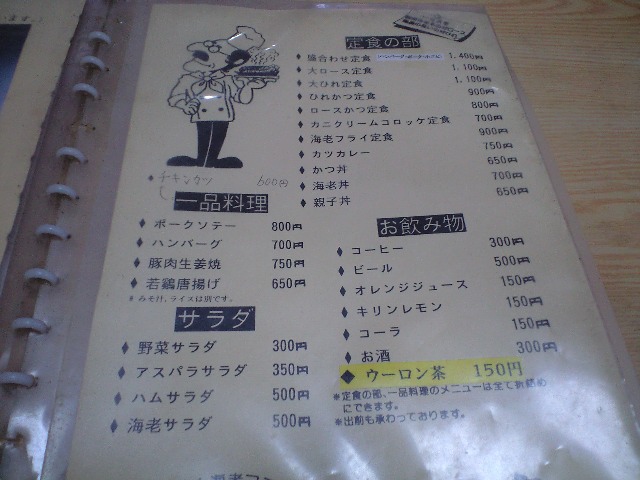 います。♪
定食の部
◆ 盛合わせ定食 1,400円
◆ 大ロース定食 1,100円
◆ 大ひれ定食 1,100円
◆ ひれかつ定食 900円
◆ ロースかつ定食 800円
◆ カニクリームコロッケ定食 700円
◆ 海老フライ定食 900円
◆ カツカレー 750円
◆ かつ丼 650円
◆ 海老丼 700円
◆ 親子丼 650円
◆ チキンカツ 600円
一品料理
◆ ポークソテー 800円
◆ ハンバーグ 700円
◆ 豚肉生姜焼 750円
◆ 若鶏唐揚げ 650円
※みそ汁、ライスは別です。
サラダ
◆ 野菜サラダ 300円
◆ アスパラサラダ 350円
◆ ハムサラダ 500円
◆ 海老サラダ 500円
お飲み物
◆ コーヒー 300円
◆ ビール 500円
◆ オレンジジュース 150円
◆ キリンレモン 150円
◆ コーラ 150円
◆ お酒 300円
◆ ウーロン茶 150円
※定食の部、一品料理のメニューは全て折詰め
にできます。
※出前も承わっております。